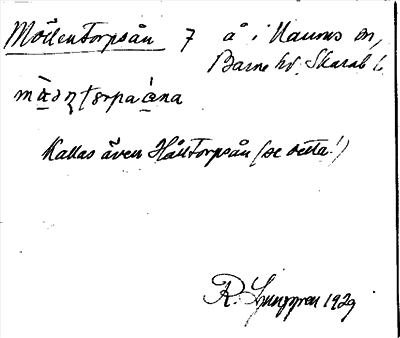 Möllentorpsån 7 å i Naums sn,
Barne hd. Skarab. l.
Kallas även Hålltorpsån (se detta!)
R. Ljunggren 1929